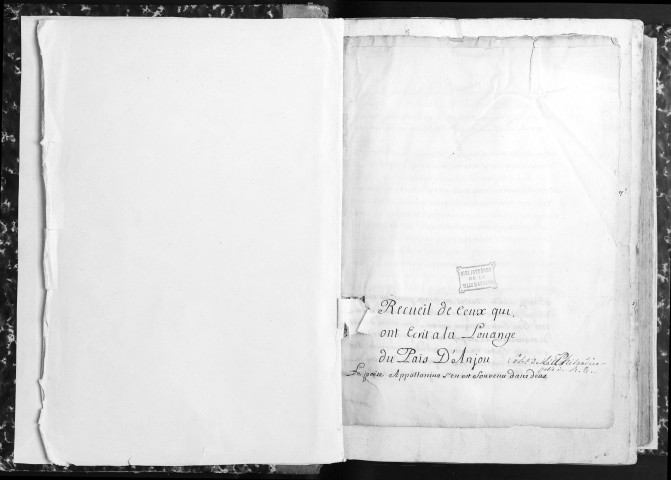 BIBLIOTHÈQUE
DE LA
VILLE D'ANGERS
Recueil de Ceux qui
ont Ecrit a la Louange
du Païs D'Anjou
Appollonius s'en est souvenu dans deux